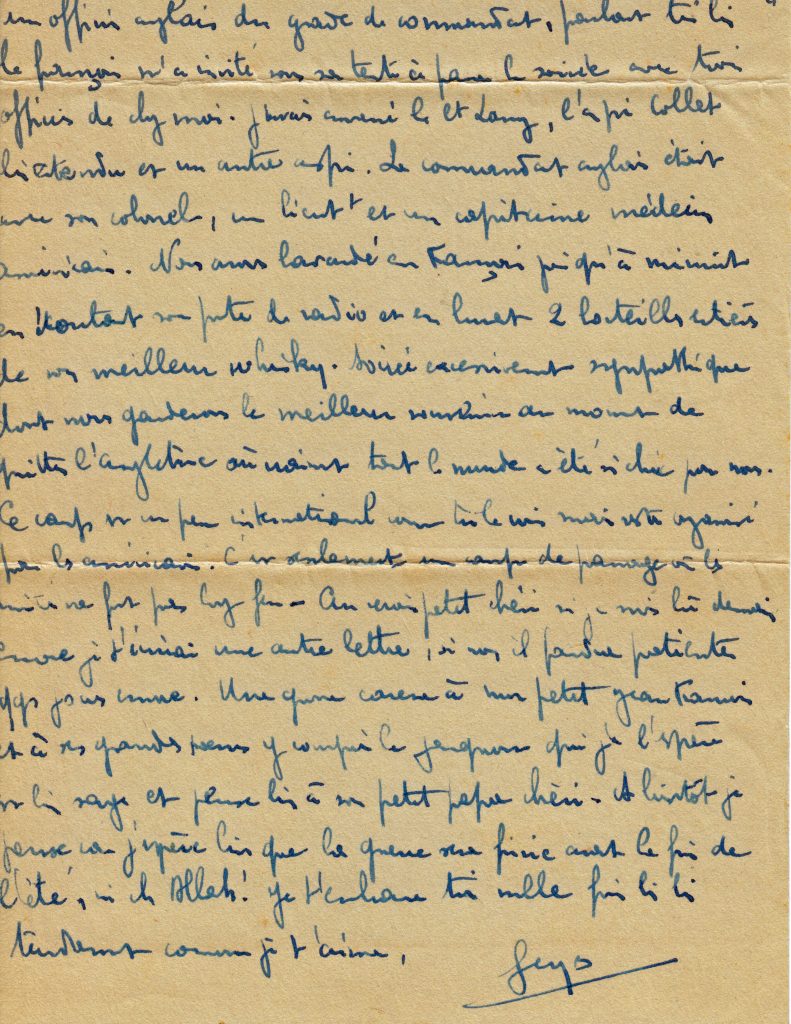 un officier anglais du grade de commandant, parlant très bien
le français m'a invité sous sa tente à passer la soirée avec trois
officiers de chez moi. J'avais amené le Lt Lamy, l'aspi Collet
bien entendu et un autre aspi. Le commandant anglais était
avec son colonel, un lieutt et un capitaine médecin
américain. Nous avons bavardé en français jusqu'à minuit
en écoutant son poste de radio et en buvant 2 bouteilles entières
de son meilleur whisky. Soirée excessivement sympathique
dont nous garderons le meilleur souvenir au moment de
quitter l'Angleterre où vraiment tout le monde a été si chic pour nous.
Ce camp est un peu international comme tu le vois mais est organisé
par les américains. C'est seulement un camp de passage où les
unités ne font pas long feu - Au revoir petit chéri si je suis là demain
encore je t'écrirai une autre lettre, si non, il faudra patienter
qqs jours encore. Une grosse caresse à mon petit Jean François
et à ses grandes soeurs y compris le qui je l'espère
est bien sage et pense bien à son petit papa chéri - A bientôt je
pense car j'espère bien que la guerre sera finie avant la fin de
l'été, in ch Allah! Je t'embrasse très mille fois bien bien
tendrement comme je t'aime,